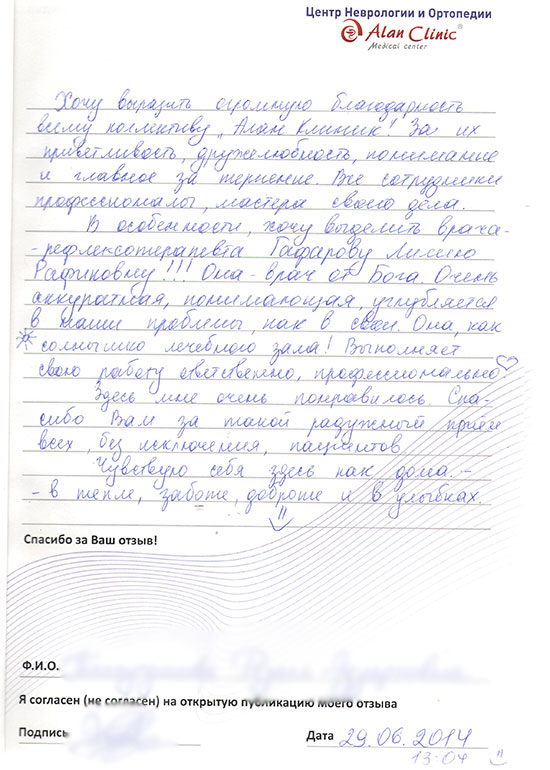 Центр Неврологии и Ортопедии
Alan Clinic®
Medical center
Хочу выразить огромную благодарность
всему коллективу „Алан Клиник! За их
приветливость, дружелюбность, понимание
и главное за терпение. Все сотрудники
профессионалы, мастера своего дела.
В особенности, хочу выделить врача-
-рефлексотерапевта Гафарову Лисию
Рафиковну!!! Она - врач от Бога. Очень
аккуратная, понимающая, углубляется
в наши проблемы, как в свои. Она, как
солнышко лечебного зала! Выполняет
свою работу ответственно, профессионально.
Здесь мне очень понравилось. Спа-
сибо Вам за такой радужный приём
всех, без исключения, пациентов.
Чувствую себя здесь как дома. -
- в тепле, заботе, доброте и в улыбках.
Спасибо за Ваш отзыв!
Ф.И.О.
Я согласен (не согласен) на открытую публикацию моего отзыва
Подпись Дата 29.06.2014
13:04